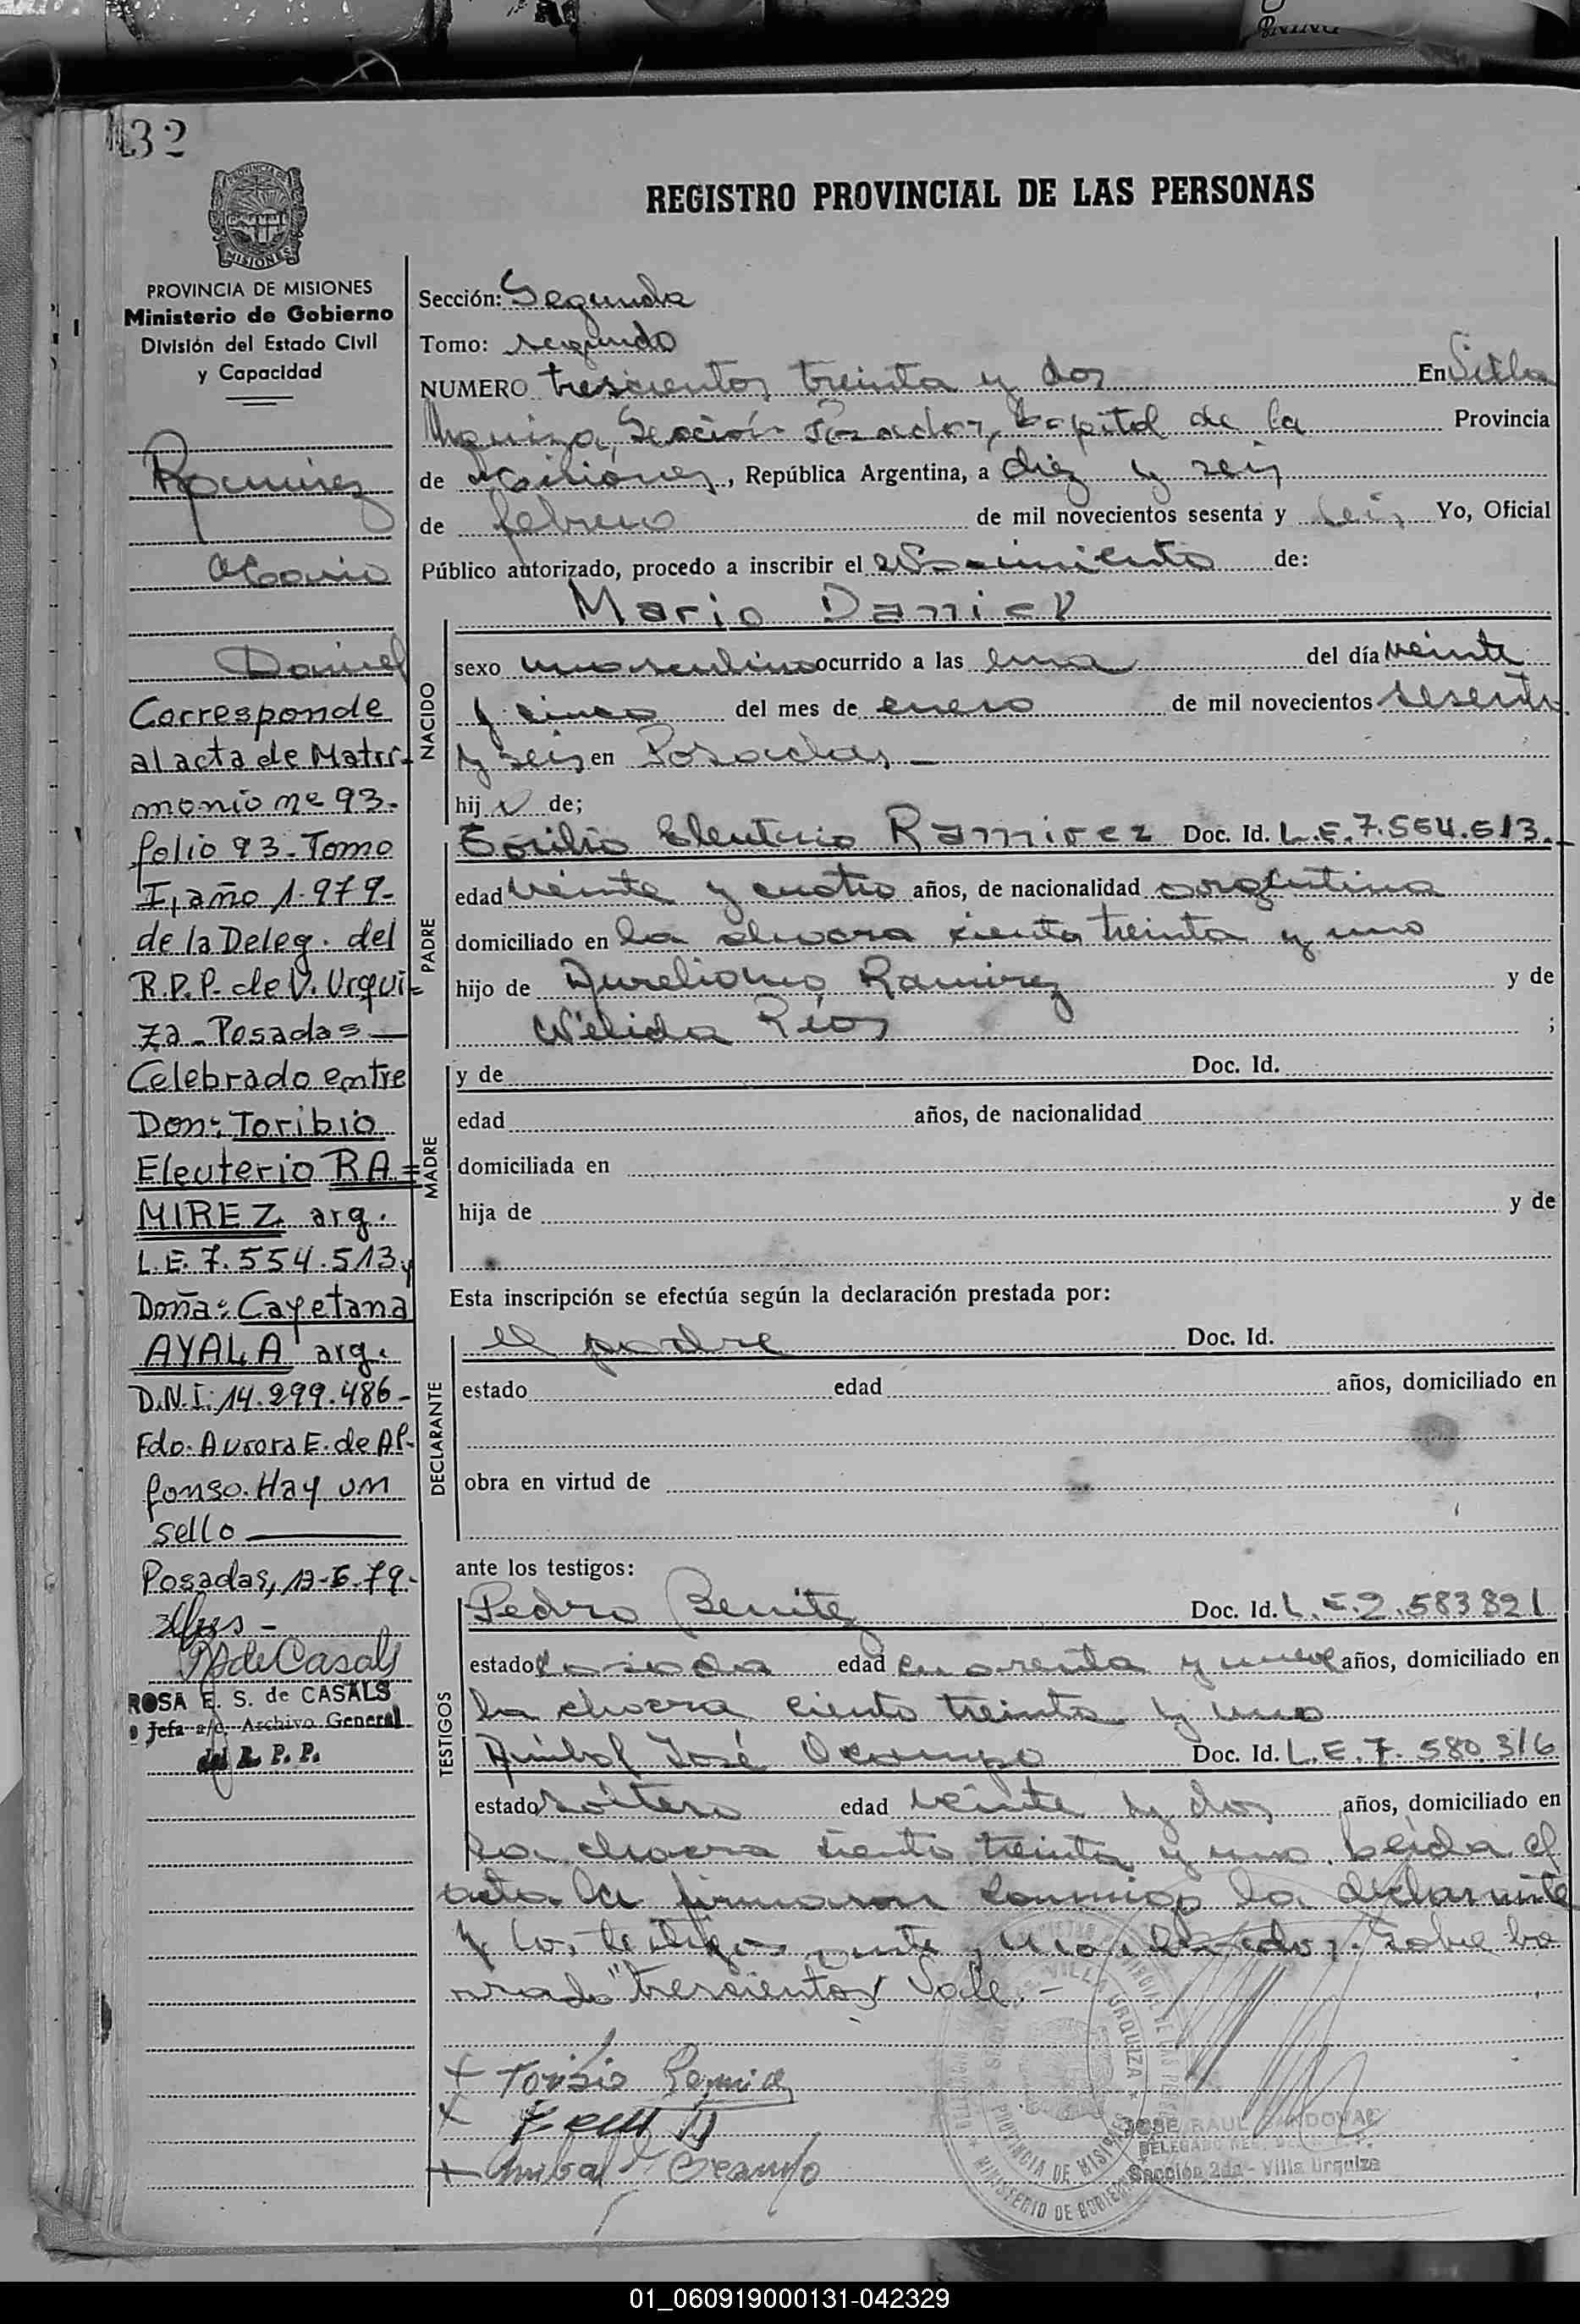 132
REGISTRO PROVINCIAL DE LAS PERSONAS
PROVINCIA DE MISIONES
Ministerio de Gobierno
División del Estado Civil
y Capacidad
Ramirez
Mario
Daniel
Corresponde
al acta de Matri-
monio nº 93.
folio 93. Tomo
I, año 1.979-
de la Deleg. del
R.P.P. de V. Urqui=
za - Posadas
Celebrado entre
Don: Toribio
Eleuterio RA=
MIREZ arg.
L.E. 7.554.513 y
Doña: Cayetana
AYALA arg.
D.N.I. 14.299.486-
Fdo. Aurora E. de Al-
fonso. Hay un
sello
Posadas, 79-
R S de Casals
ROSA E. S. de CASALS
Jefa a/c. Archivo General
del R. P. P.
Sección: Segunda
Tomo: segundo
NUMERO trescientos treinta y dos En Villa
Urquiza, Sección Posadas, Capital de la Provincia
de Misiones, República Argentina, a diez y seis
de febrero de mil novecientos sesenta y seis Yo, Oficial
Público autorizado, procedo a inscribir el Nacimiento de:
Mario Daniel
NACIDO
sexo masculino ocurrido a las una del día veinte
y cinco del mes de enero de mil novecientos sesenta
y seis en Posadas
hij o de;
PADRE
Toribio Eleuterio Ramirez Doc. Id. L.E. 7.554.513.-
edad veinte y cuatro años, de nacionalidad argentina
domiciliado en la chacra ciento treinta y uno
hijo de Aureliano Ramirez y de
Nélida Ríos ;
MADRE
y de Doc. Id.
edad años, de nacionalidad
domiciliada en
hija de y de
Esta inscripción se efectúa según la declaración prestada por:
DECLARANTE
el padre Doc. Id.
estado edad años, domiciliado en
obra en virtud de
ante los testigos:
TESTIGOS
Pedro Benitez Doc. Id. L.E. 2.583821
estado casado edad cuarenta y nueve años, domiciliado en
la chacra ciento treinta y uno
Anibal José Ocampo Doc. Id. L.E. 7.580.316
estado soltero edad veinte y dos años, domiciliado en
la chacra ciento treinta y uno. Leida el
acta la firmaron conmigo la declarante
y los testigos Sobre bo
rrado "trescientos" Vale.-
+ Toribio Ramirez
+
+ Anibal J Ocampo
VILLA URQUIZA
PROVINCIA DE MISIONES
MINISTERIO DE GOBIERNO
JOSE RAUL SANDOVAL
Sección 2da - Villa Urquiza
01_060919000131-042329